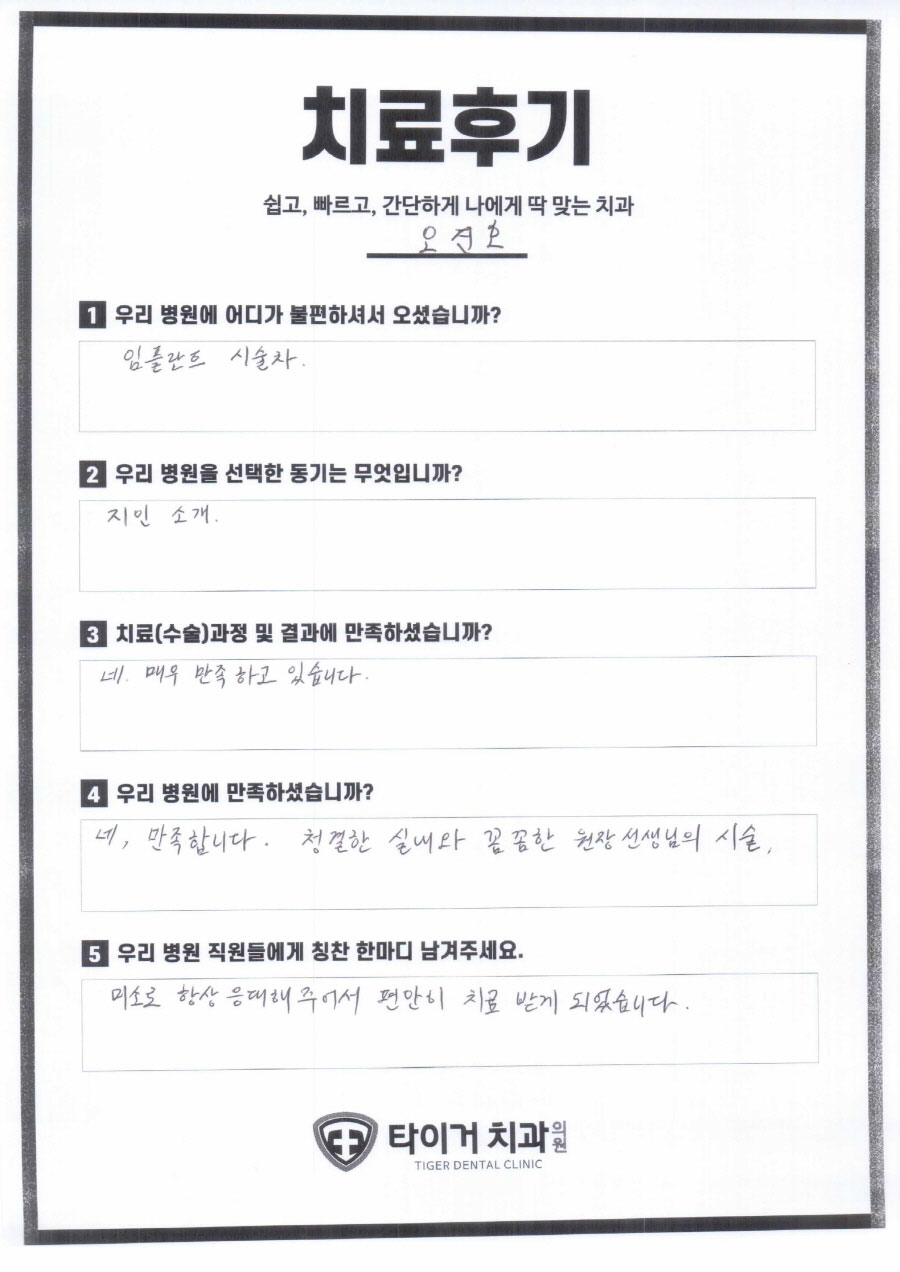 치료후기
쉽고, 빠르고, 간단하게 나에게 딱 맞는 치과
1 우리 병원에 어디가 불편하셔서 오셨습니까?
임플란트 시술차.
2 우리 병원을 선택한 동기는 무엇입니까?
지인 소개.
3 치료(수술)과정 및 결과에 만족하셨습니까?
네. 매우 만족하고 있습니다.
4 우리 병원에 만족하셨습니까?
네, 만족합니다. 청결한 실내와 꼼꼼한 원장선생님의 시술,
5 우리 병원 직원들에게 칭찬 한마디 남겨주세요.
미소로 항상 응대해주어서 편안히 치료 받게 되었습니다.
타이거 치과의원
TIGER DENTAL CLINIC